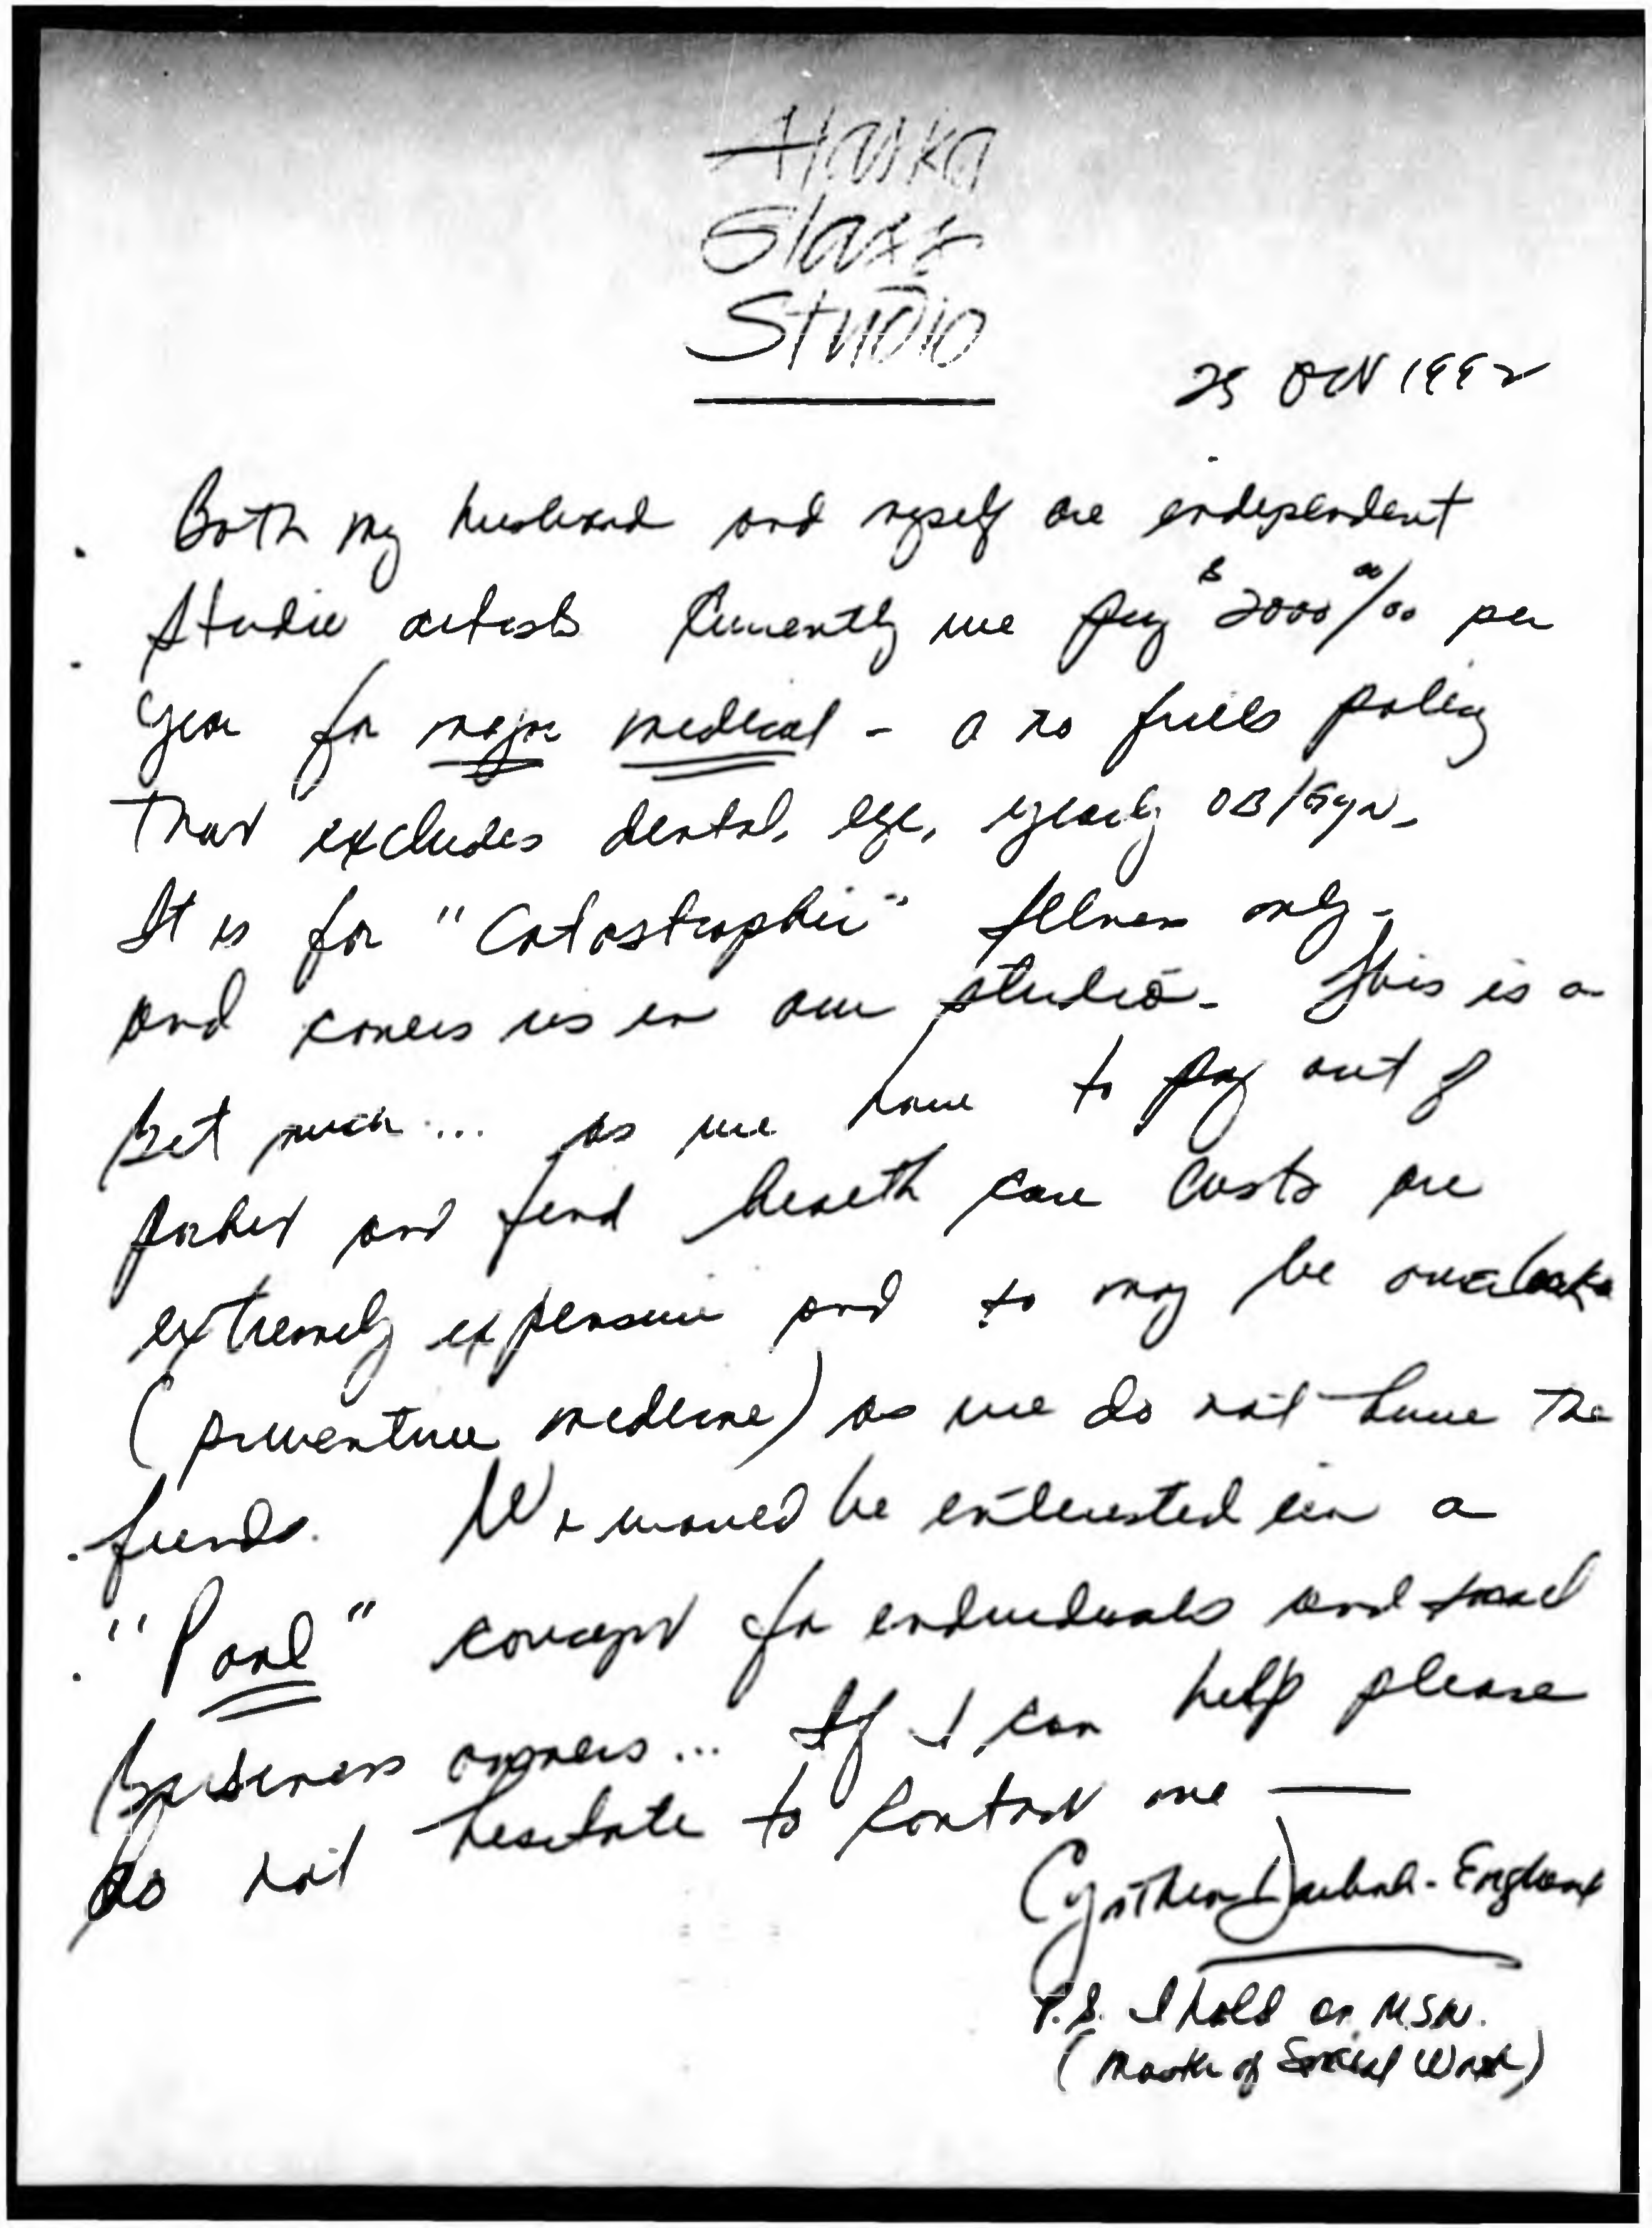 Alaska
Glass
Studio
25 Oct 1992
Both my husband and myself are independent
Studio artists Currently we pay $2000 00/00 per
year for major medical - a no frills policy
that excludes dental, eye, yearly OB/Gyn.
It is for "Catastrophic" illness only -
and covers us in our studio. This is a
bit much ... as we have to pay out of
pocket and find health care costs are
extremely expensive and to may be overlooked
(preventive medicine) as we do not have the
funds. We would be interested in a
"Pool" concept for individuals and small
Business owners ... If I can help please
do not hesitate to contact me —
Cynthia -England
P.S. I hold an MSW.
(Master of Social Work)